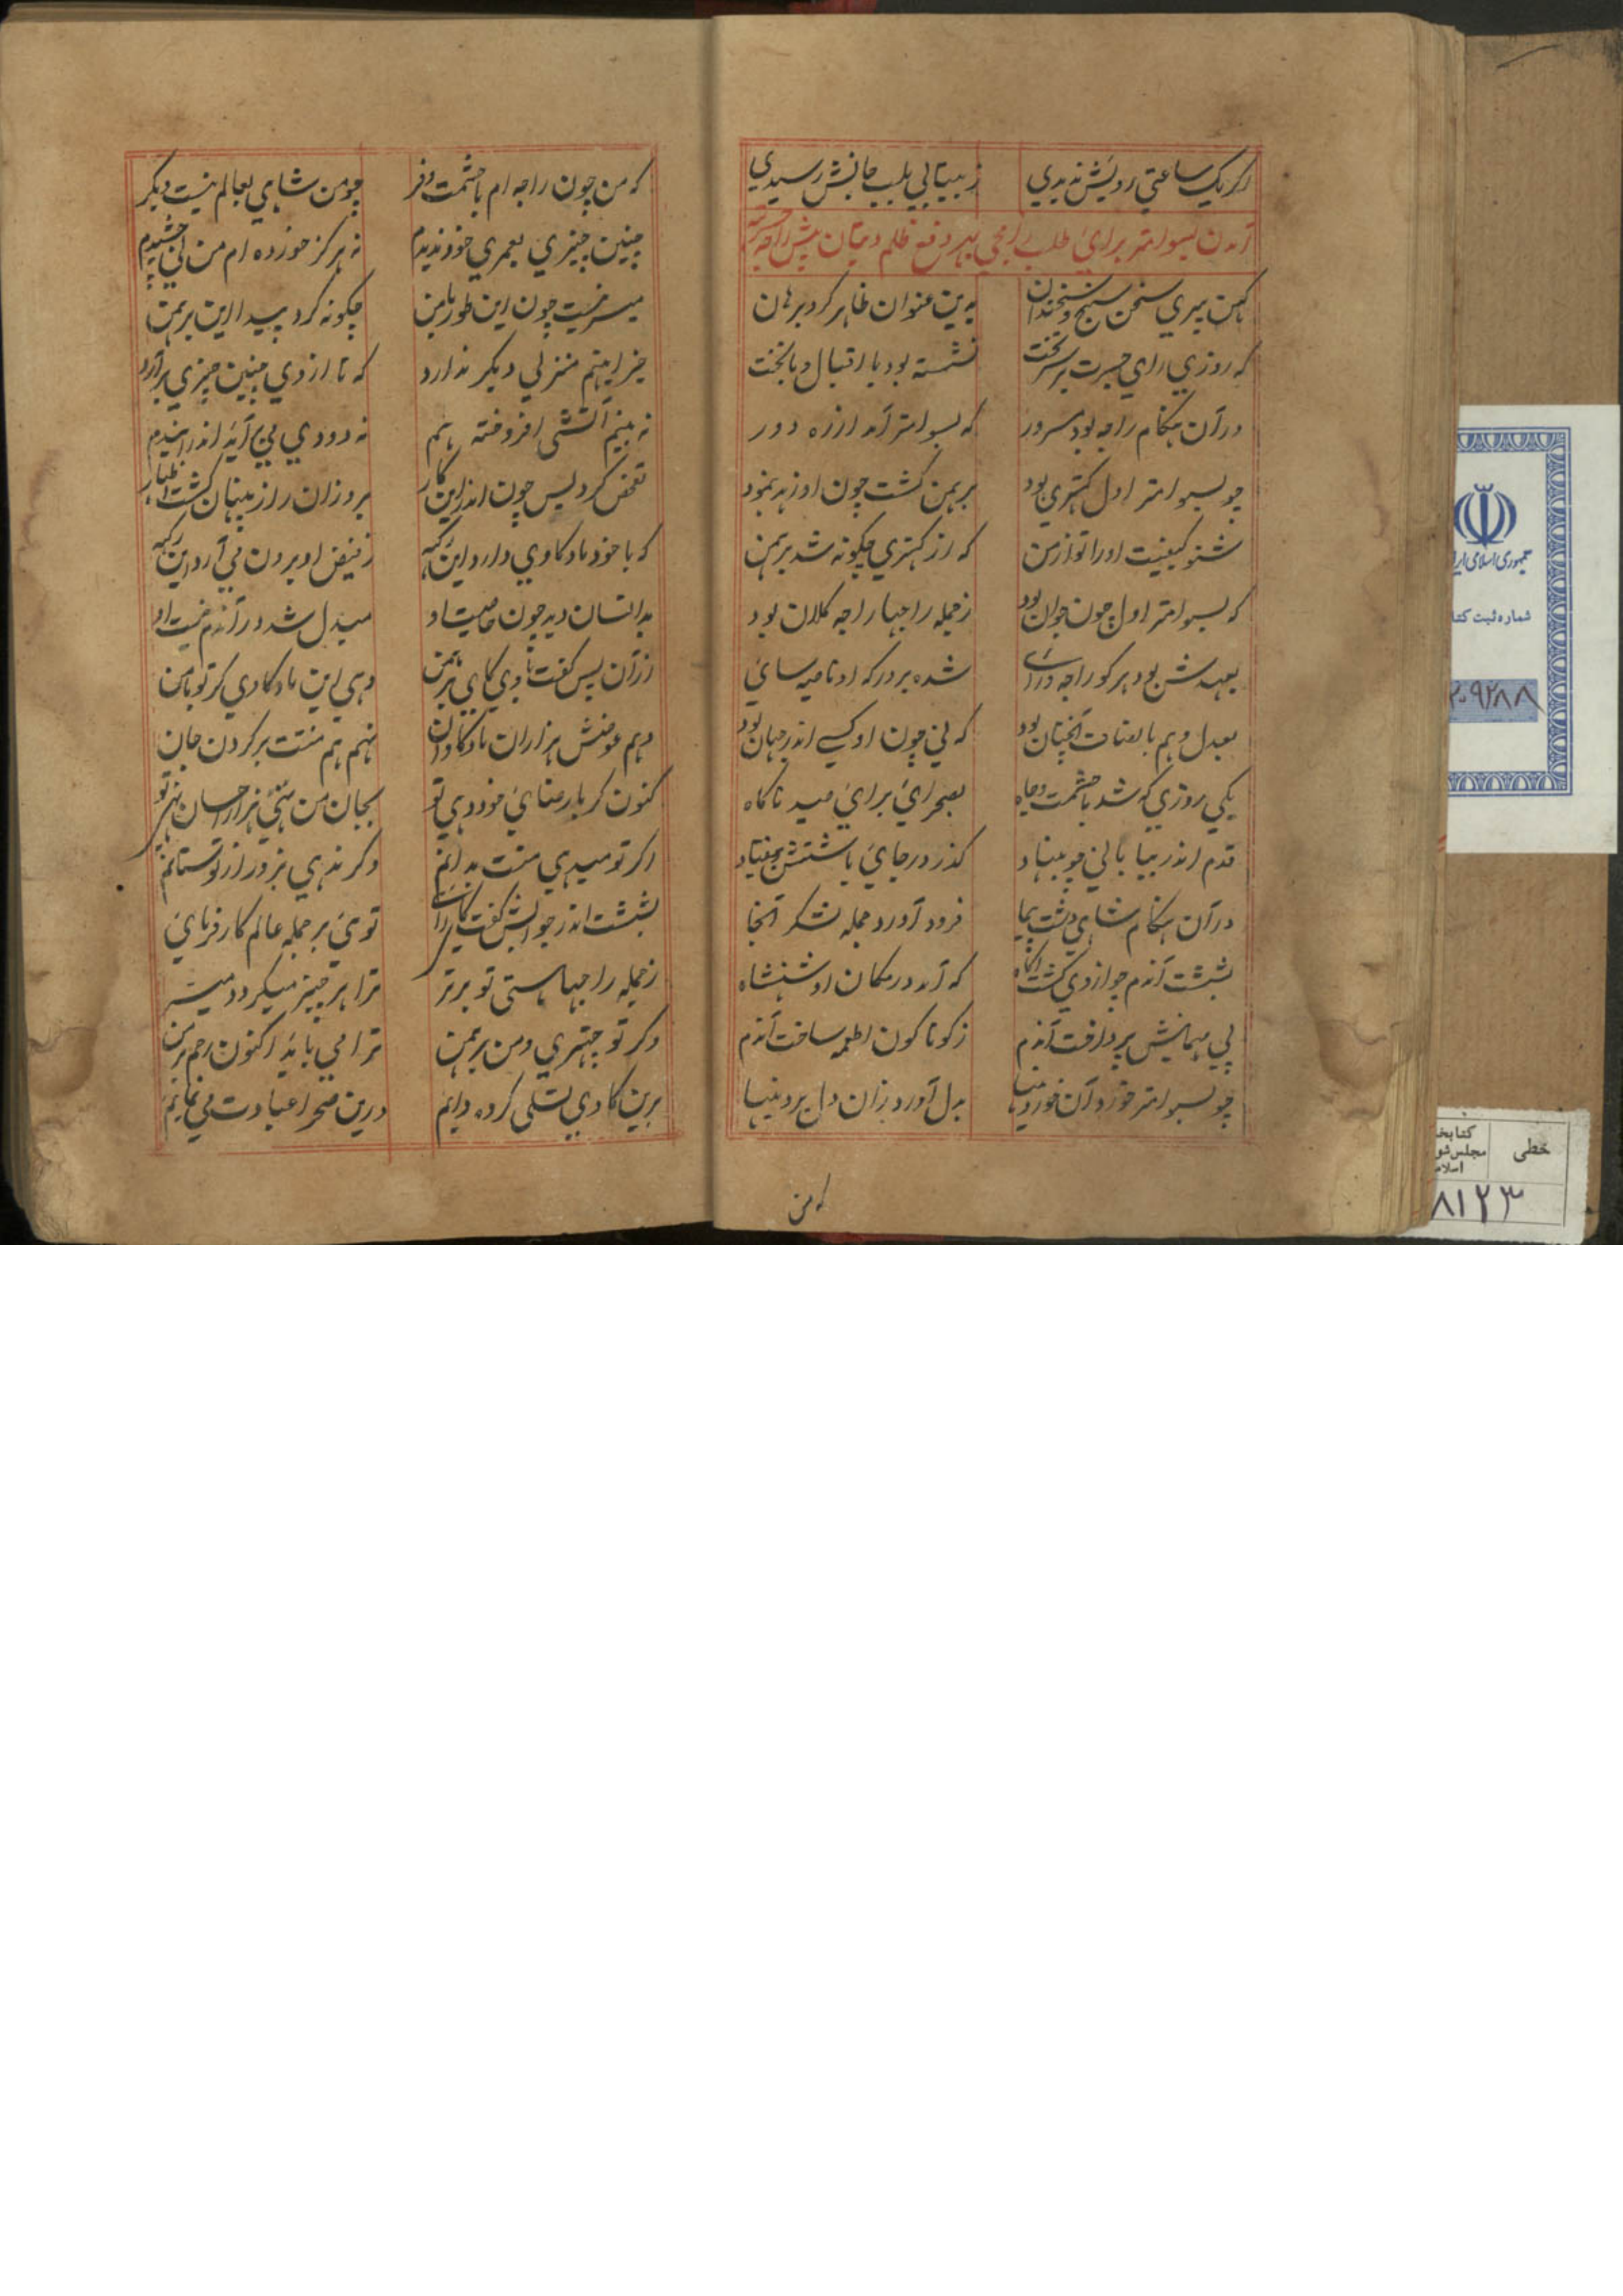 اکر یک ساعتی رویش ندیدی ز بیتابی بلب جانش رسیدی
آمدن بسوامتر برای طلب رامچی بهر دفع ظلم دیتان پیش راجه جسرتهه
کهن پیری سخن سنج و سخندان بدین عنوان ظاهر کرد برهان
که روزی رای جسرت بر سر تخت نشسته بود با اقبال و با بخت
در آن هنکام راجه بود مسرور که بسوامتر آمد از ره دور
چو بسوامتر اول کهتری بود برهمن کشت چون او زهد بنمود
شنو کیفیت او را تو از من که از کهتری چکونه شد برهمن
که بسوامتر اول چون جوان بود ز جمله راجها راجه کلان بود
بعهدش بود هر کو راجه و رای شده بر درکه او ناصیه سای
بعدل و هم بانصاف آنچنان بود که نی چون او کسی اندر جهان بود
یکی روزی که شد با حشمت و جاه بصحرای برای صید ناکاه
قدم اندر بیابانی چو بنهاد کذر در جای باشتش بیفتاد
در آن هنکام شاه دشت پیما فرود آورد جمله لشکر آنجا
بششت آندم چو از وی کشت آکاه که آمد در مکان او شهنشاه
پی مهمانیش پرداخت آندم ز کوناکون اطعمه ساخت آندم
چو بسوامتر خورد آن خوردنیها بدل آورد زان دل بردنیها
که من
که من چون راجه ام با حشمت و فر چو من شاهی بعالم نیست دیکر
چنین چیزی بعمری خود ندیدم نه هرکز خورده ام من نی چشیدم
میسر نیست چون این طور با من چکونه کرد پیدا این برهمن
جز اینهم منزلی دیکر ندارد که تا از وی چنین چیزی برآرد
نه بینم آتشی افروخته هم نه دودی می برآید اندرین دم
تفحص کرد پس چون اندرین کار برو زان راز پنهان کشت اظهار
که با خود ماده کاوی دارد این که ز فیض او برون می آرد این که
بدانسان دید چون خاصیت او مبدل شد در آندم نیت او
از آن پس کفت با وی کای برهمن دهی این ماده کاوی کر تو با من
دهم عوضش هزاران ماده کاوان نهم هم منتت بر کردن جان
کنون کر با رضای خود دهی تو بجان من نهی هزار احسان تو
اکر تو میدهی منت بدانم وکر ندهی بزور از تو ستانم
بششت اندر جوابش کفت کای رای توی بر جمله عالم کارفرمای
ز جمله راجها هستی تو برتر ترا هر چیز میکردد میسر
وکر تو چهتری و من برهمن ترا می باید اکنون رحم بر من
برین کاوی تسلی کرده دایم درین صحرا عبادت می نمایم
جمهوری اسلامی ایر
شماره ثبت کتا
۲۰۹۲۸۸
خطی
کتابخ
مجلس شو
اسلام
۸۱۲۳